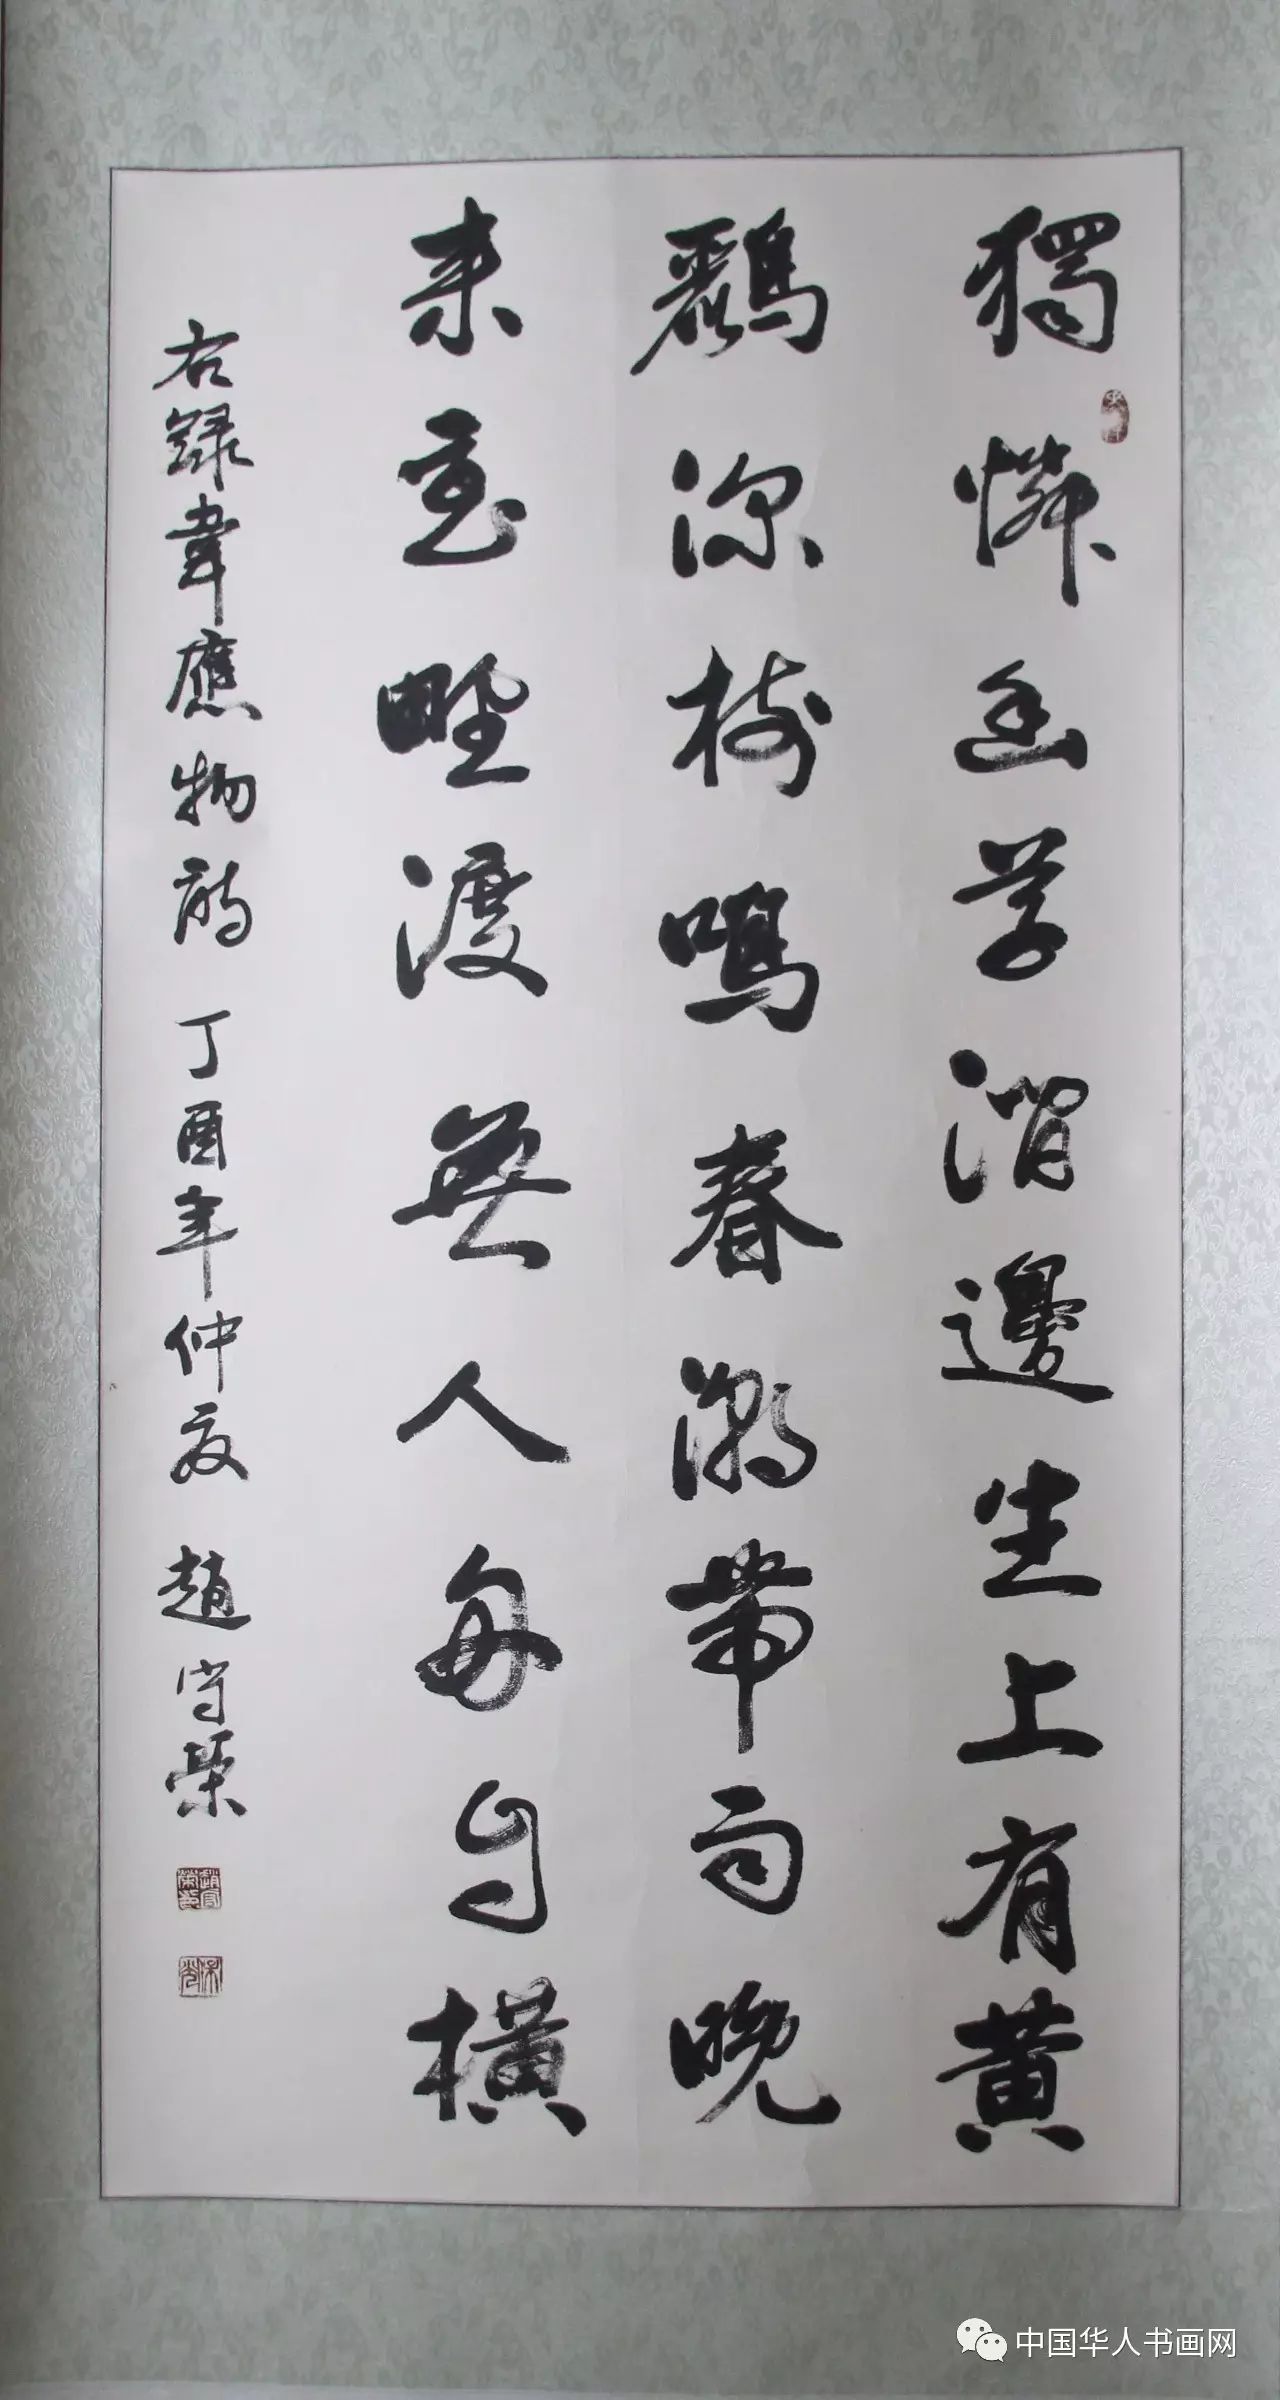 獨憐幽草澗邊生上有黄
鸝深樹鳴春潮帶雨晚
来急野渡無人舟自橫
右録韋應物詩 丁酉年仲夏 趙守榮
中国华人书画网